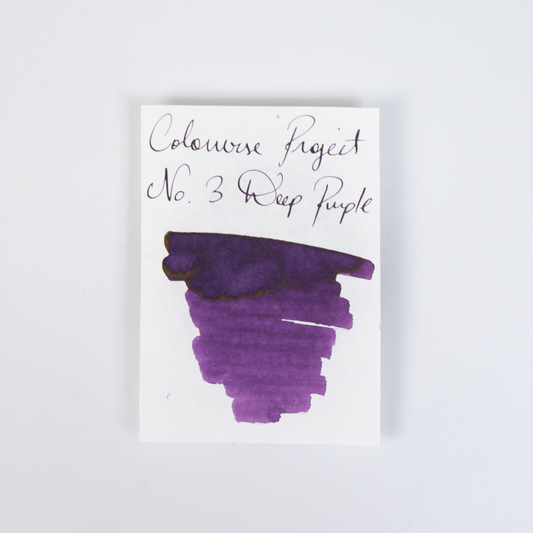 Colorverse Project
No. 3 Deep Purple